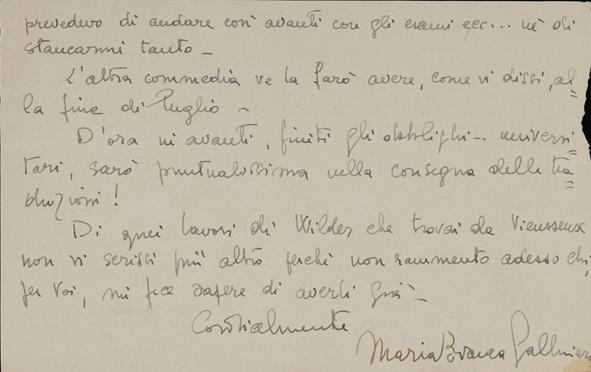 prevedevo di andare così avanti con gli esami ecc... nè di
stancarmi tanto –
L'altra commedia ve la farò avere, come vi dissi, al=
la fine di Luglio –
D'ora in avanti, finiti gli obblighi... universi=
tari, sarò puntualissima nella consegna delle tra=
duzioni!
Di quei lavori di Wilder che trovai da Vieusseux
non vi scrissi più altro perchè non rammento adesso chi,
per Voi, mi fece sapere di averli già –
Cordialmente
Maria Bianca Gallinaro